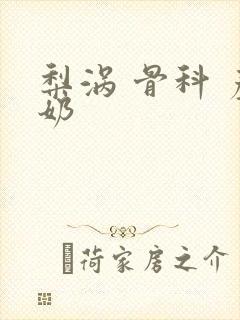 梨涡 骨科
奶
荷家房之介